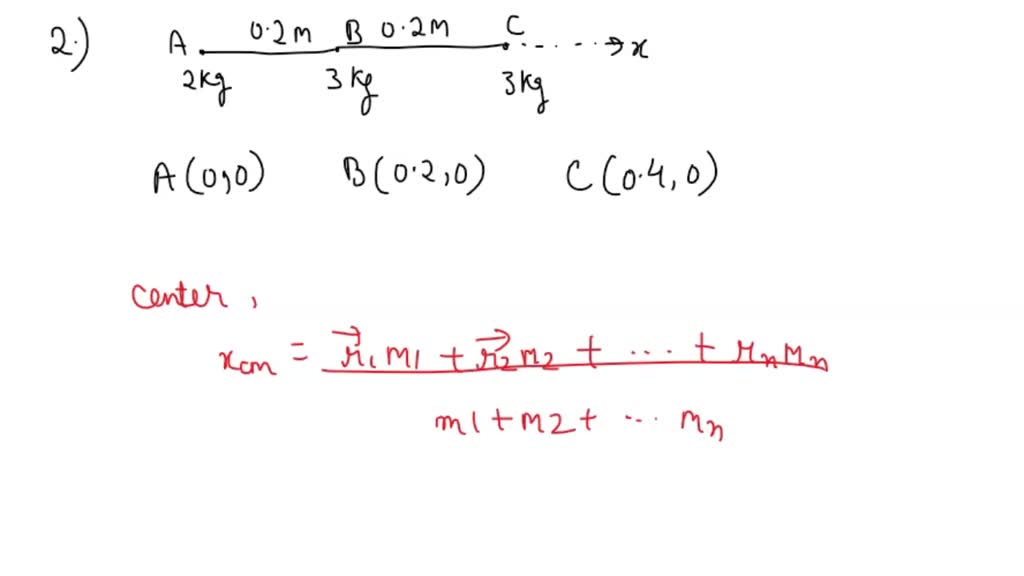 2.) A 0.2M B 0.2M C x
2kg 3kg 3kg
A(0,0) B(0.2,0) C(0.4,0)
center,
xcm = r1m1 + r2m2 + ... + rnmn
m1+m2+ ... mn